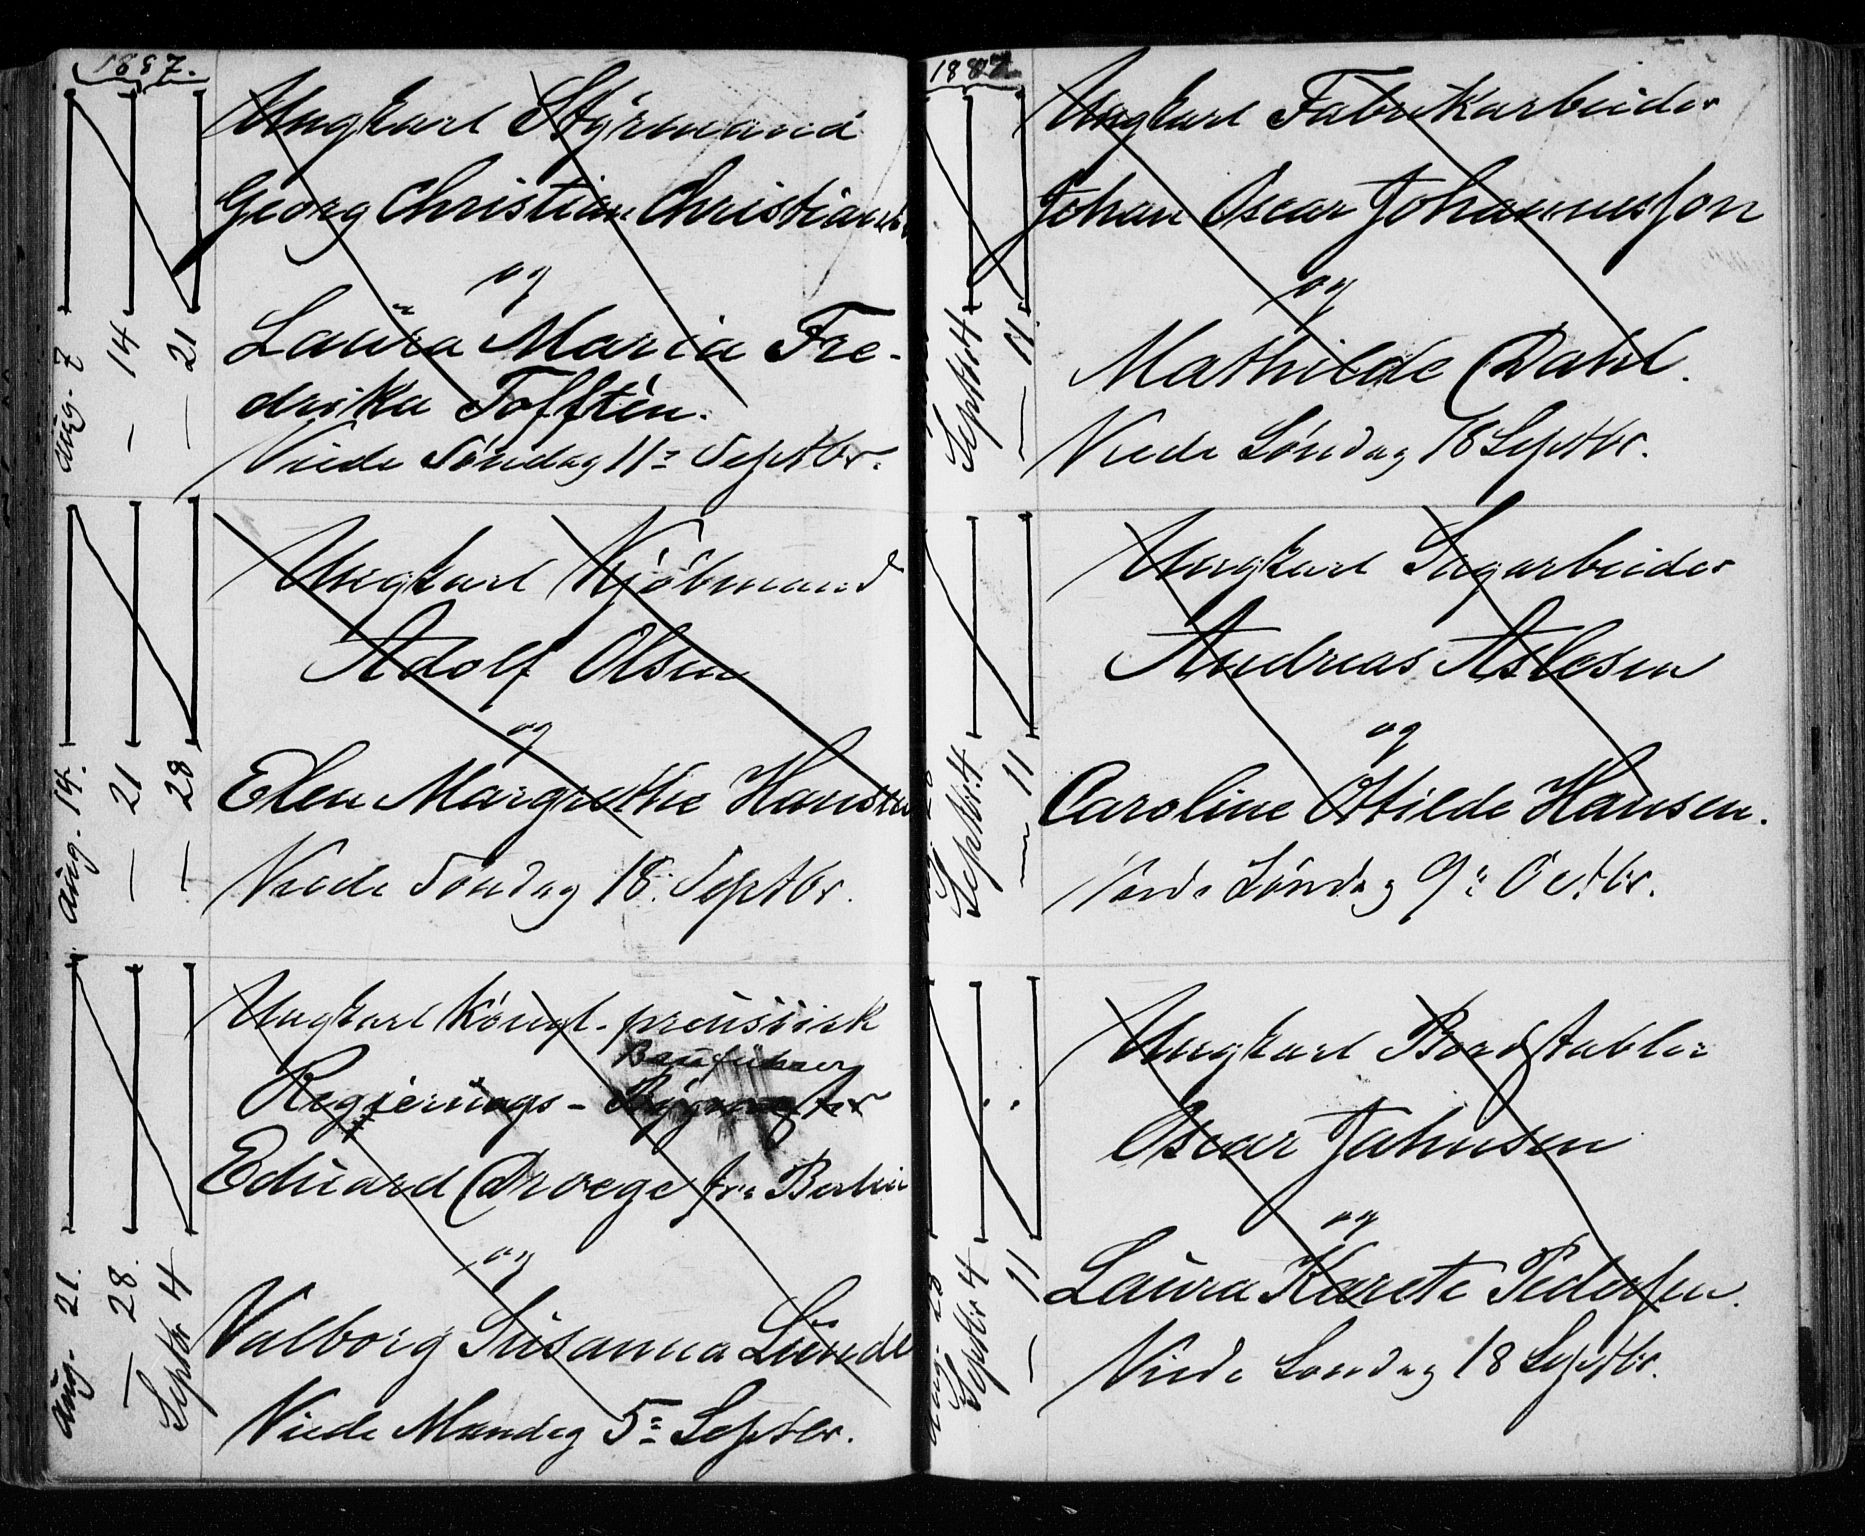 1887.
Aug. 7
— 14
— 21
Ungkarl Styrmand
Georg Christian Christiansen
og
Laura Maria Fre-
drika Tofftèn.
Viede Söndag 11: Septbr.
Aug. 14.
— 21
— 28
Ungkarl Kjöbmand
Adolf Olsen
og
Elen Margrethe Hansen
Viede Söndag 18. Septbr.
Aug. 21.
— 28.
Septbr 4
Ungkarl Köngl. preussisk
Bauführer
Regierungs-
Eduard Droege fra Berlin
og
Valborg Susanna Lunde
Viede Mandag 5: Septbr.
1887
Septbr 4
— 11.
Ungkarl Fabrikarbeider
Johan Oscar Johannesson
og
Mathilde Dahl.
Viede Söndag 18 Septbr.
Septbr. 4
— 11
Ungkarl Sagarbeider
Andreas Aslesen
og
Caroline Otilde Hansen.
Viede Söndag 9: Octbr.
Aug. 28
Septbr 4
— 11
Ungkarl Bordstabler
Oscar Jahnsen
og
Laura Karete Pedersen.
Viede Söndag 18 Septbr.